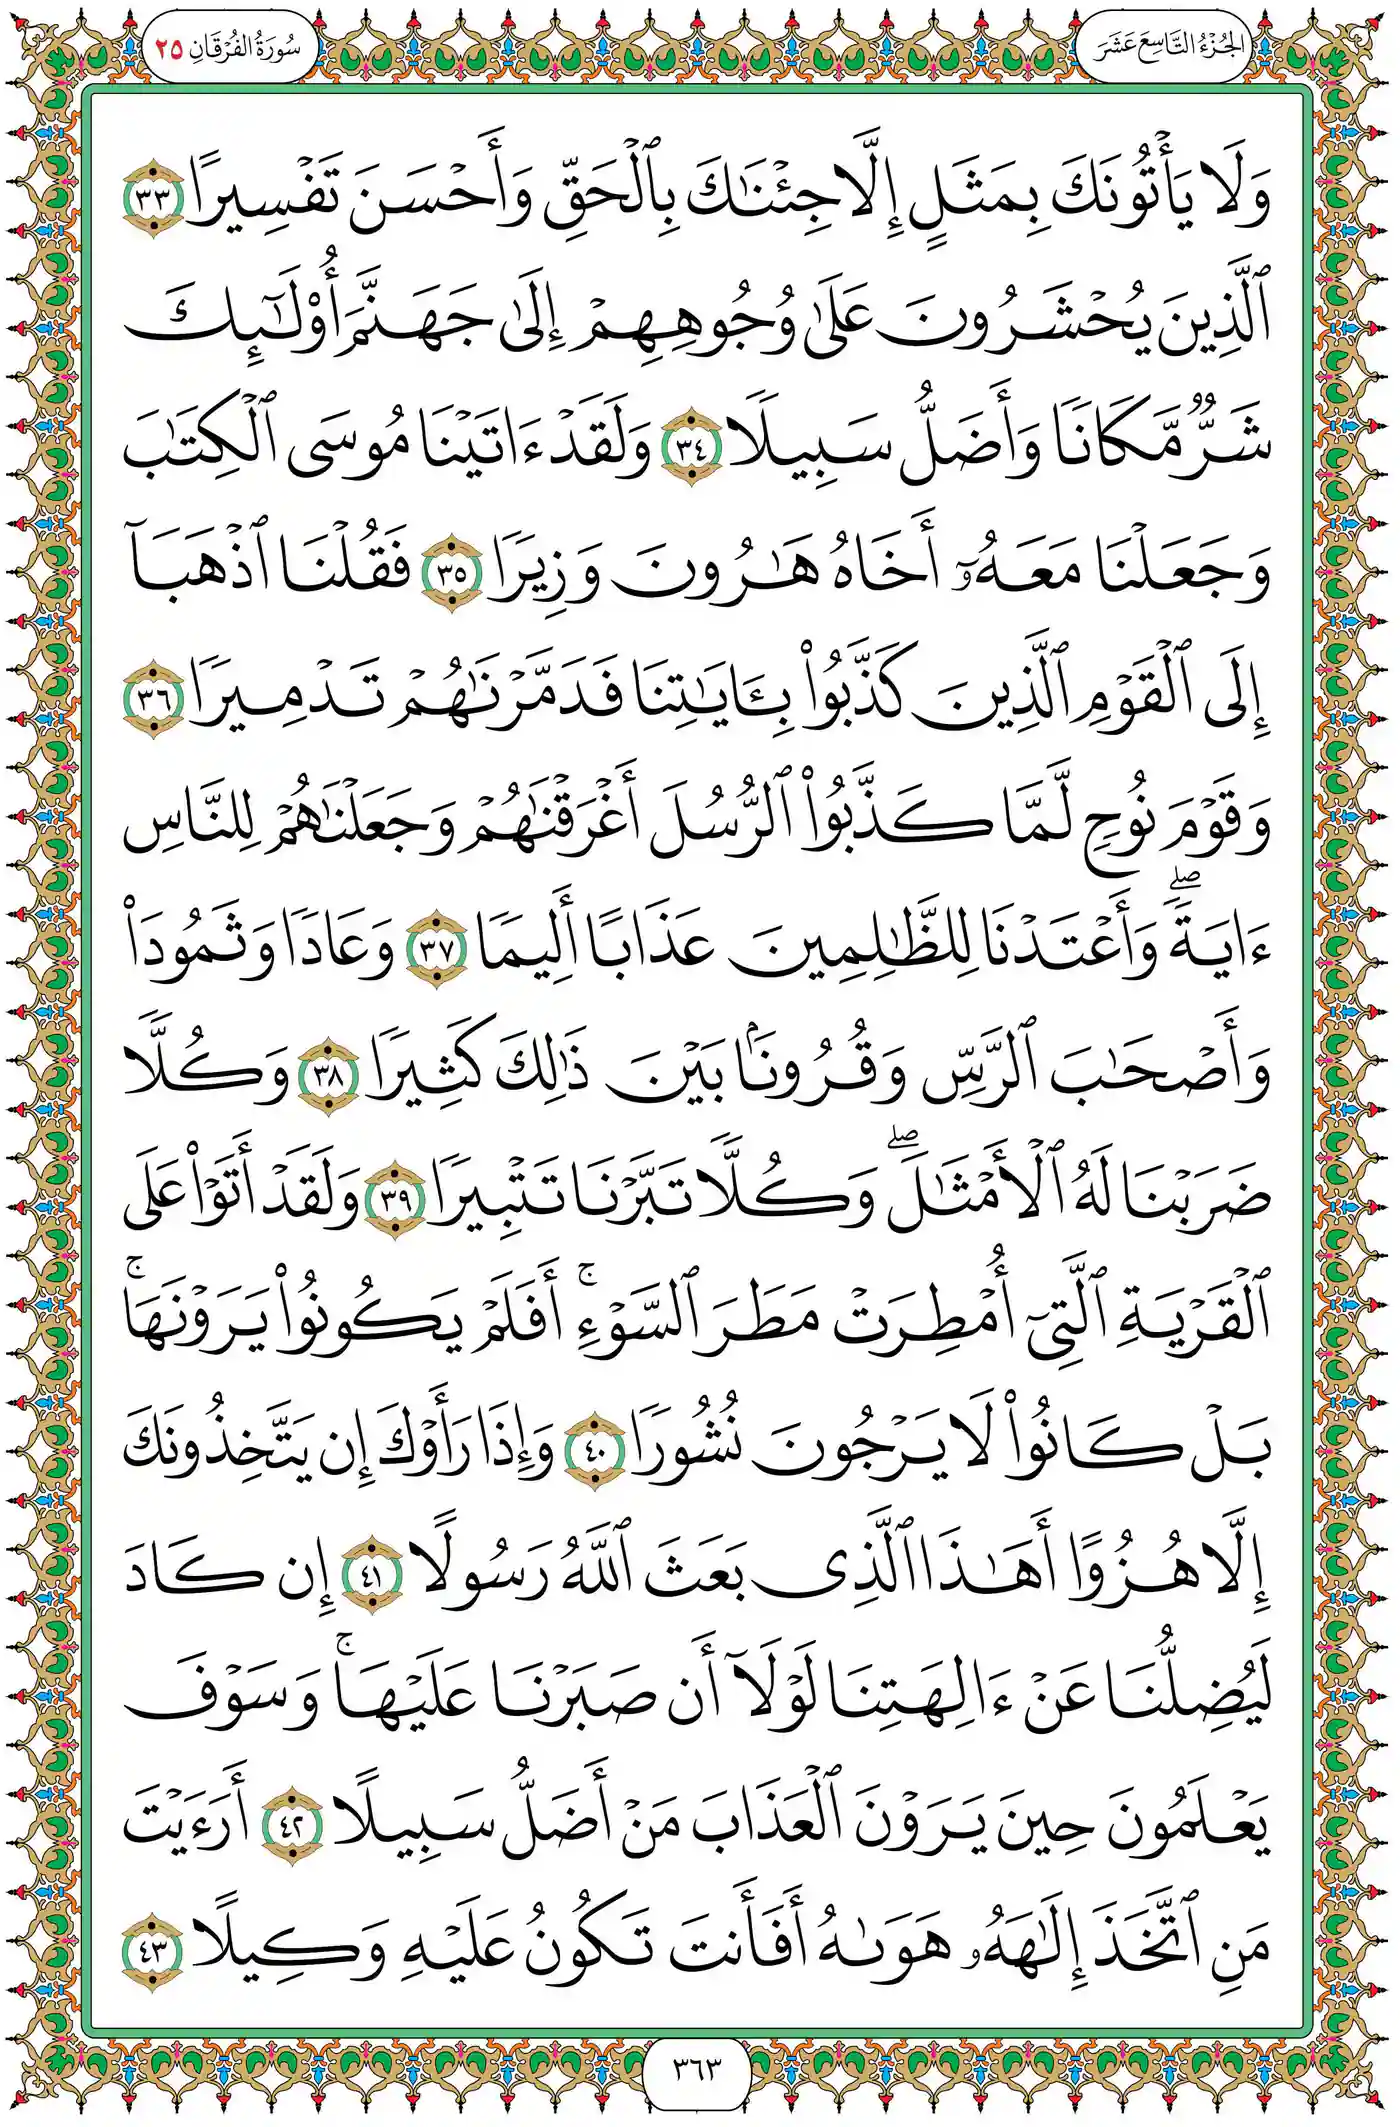 الجُزْءُ التَّاسِعَ عَشَرَ
سُورَةُ الفُرْقَانِ ٢٥
وَلَا يَأْتُونَكَ بِمَثَلٍ إِلَّا جِئْنَٰكَ بِٱلْحَقِّ وَأَحْسَنَ تَفْسِيرًا ٣٣
ٱلَّذِينَ يُحْشَرُونَ عَلَىٰ وُجُوهِهِمْ إِلَىٰ جَهَنَّمَ أُوْلَٰٓئِكَ
شَرٌّ مَّكَانًا وَأَضَلُّ سَبِيلًا ٣٤ وَلَقَدْ ءَاتَيْنَا مُوسَى ٱلْكِتَٰبَ
وَجَعَلْنَا مَعَهُۥٓ أَخَاهُ هَٰرُونَ وَزِيرًا ٣٥ فَقُلْنَا ٱذْهَبَآ
إِلَى ٱلْقَوْمِ ٱلَّذِينَ كَذَّبُوا۟ بِـَٔايَٰتِنَا فَدَمَّرْنَٰهُمْ تَدْمِيرًا ٣٦
وَقَوْمَ نُوحٍ لَّمَّا كَذَّبُوا۟ ٱلرُّسُلَ أَغْرَقْنَٰهُمْ وَجَعَلْنَٰهُمْ لِلنَّاسِ
ءَايَةً ۖ وَأَعْتَدْنَا لِلظَّٰلِمِينَ عَذَابًا أَلِيمًا ٣٧ وَعَادًا وَثَمُودَا۟
وَأَصْحَٰبَ ٱلرَّسِّ وَقُرُونًۢا بَيْنَ ذَٰلِكَ كَثِيرًا ٣٨ وَكُلًّا
ضَرَبْنَا لَهُ ٱلْأَمْثَٰلَ ۖ وَكُلًّا تَبَّرْنَا تَتْبِيرًا ٣٩ وَلَقَدْ أَتَوْا۟ عَلَى
ٱلْقَرْيَةِ ٱلَّتِىٓ أُمْطِرَتْ مَطَرَ ٱلسَّوْءِ ۚ أَفَلَمْ يَكُونُوا۟ يَرَوْنَهَا ۚ
بَلْ كَانُوا۟ لَا يَرْجُونَ نُشُورًا ٤٠ وَإِذَا رَأَوْكَ إِن يَتَّخِذُونَكَ
إِلَّا هُزُوًا أَهَٰذَا ٱلَّذِى بَعَثَ ٱللَّهُ رَسُولًا ٤١ إِن كَادَ
لَيُضِلُّنَا عَنْ ءَالِهَتِنَا لَوْلَآ أَن صَبَرْنَا عَلَيْهَا ۚ وَسَوْفَ
يَعْلَمُونَ حِينَ يَرَوْنَ ٱلْعَذَابَ مَنْ أَضَلُّ سَبِيلًا ٤٢ أَرَءَيْتَ
مَنِ ٱتَّخَذَ إِلَٰهَهُۥ هَوَىٰهُ أَفَأَنتَ تَكُونُ عَلَيْهِ وَكِيلًا ٤٣
٣٦٣